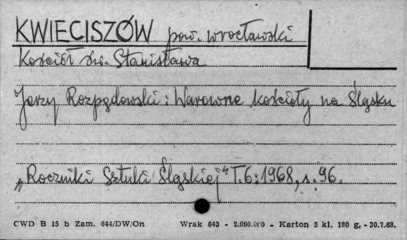 KWIECISZÓW pow. wrocławski
Kościół św. Stanisława
Jerzy Rozpędowski: Warowne kościoły na Śląsku
„Roczniki Sztuki Śląskiej" T.6:1968, s. 96.
CWD B 15 b Zam. 644/DW/On Wrak 643 - 2.090.000 - Karton 5 kl. 180 g, - 30.7.68.